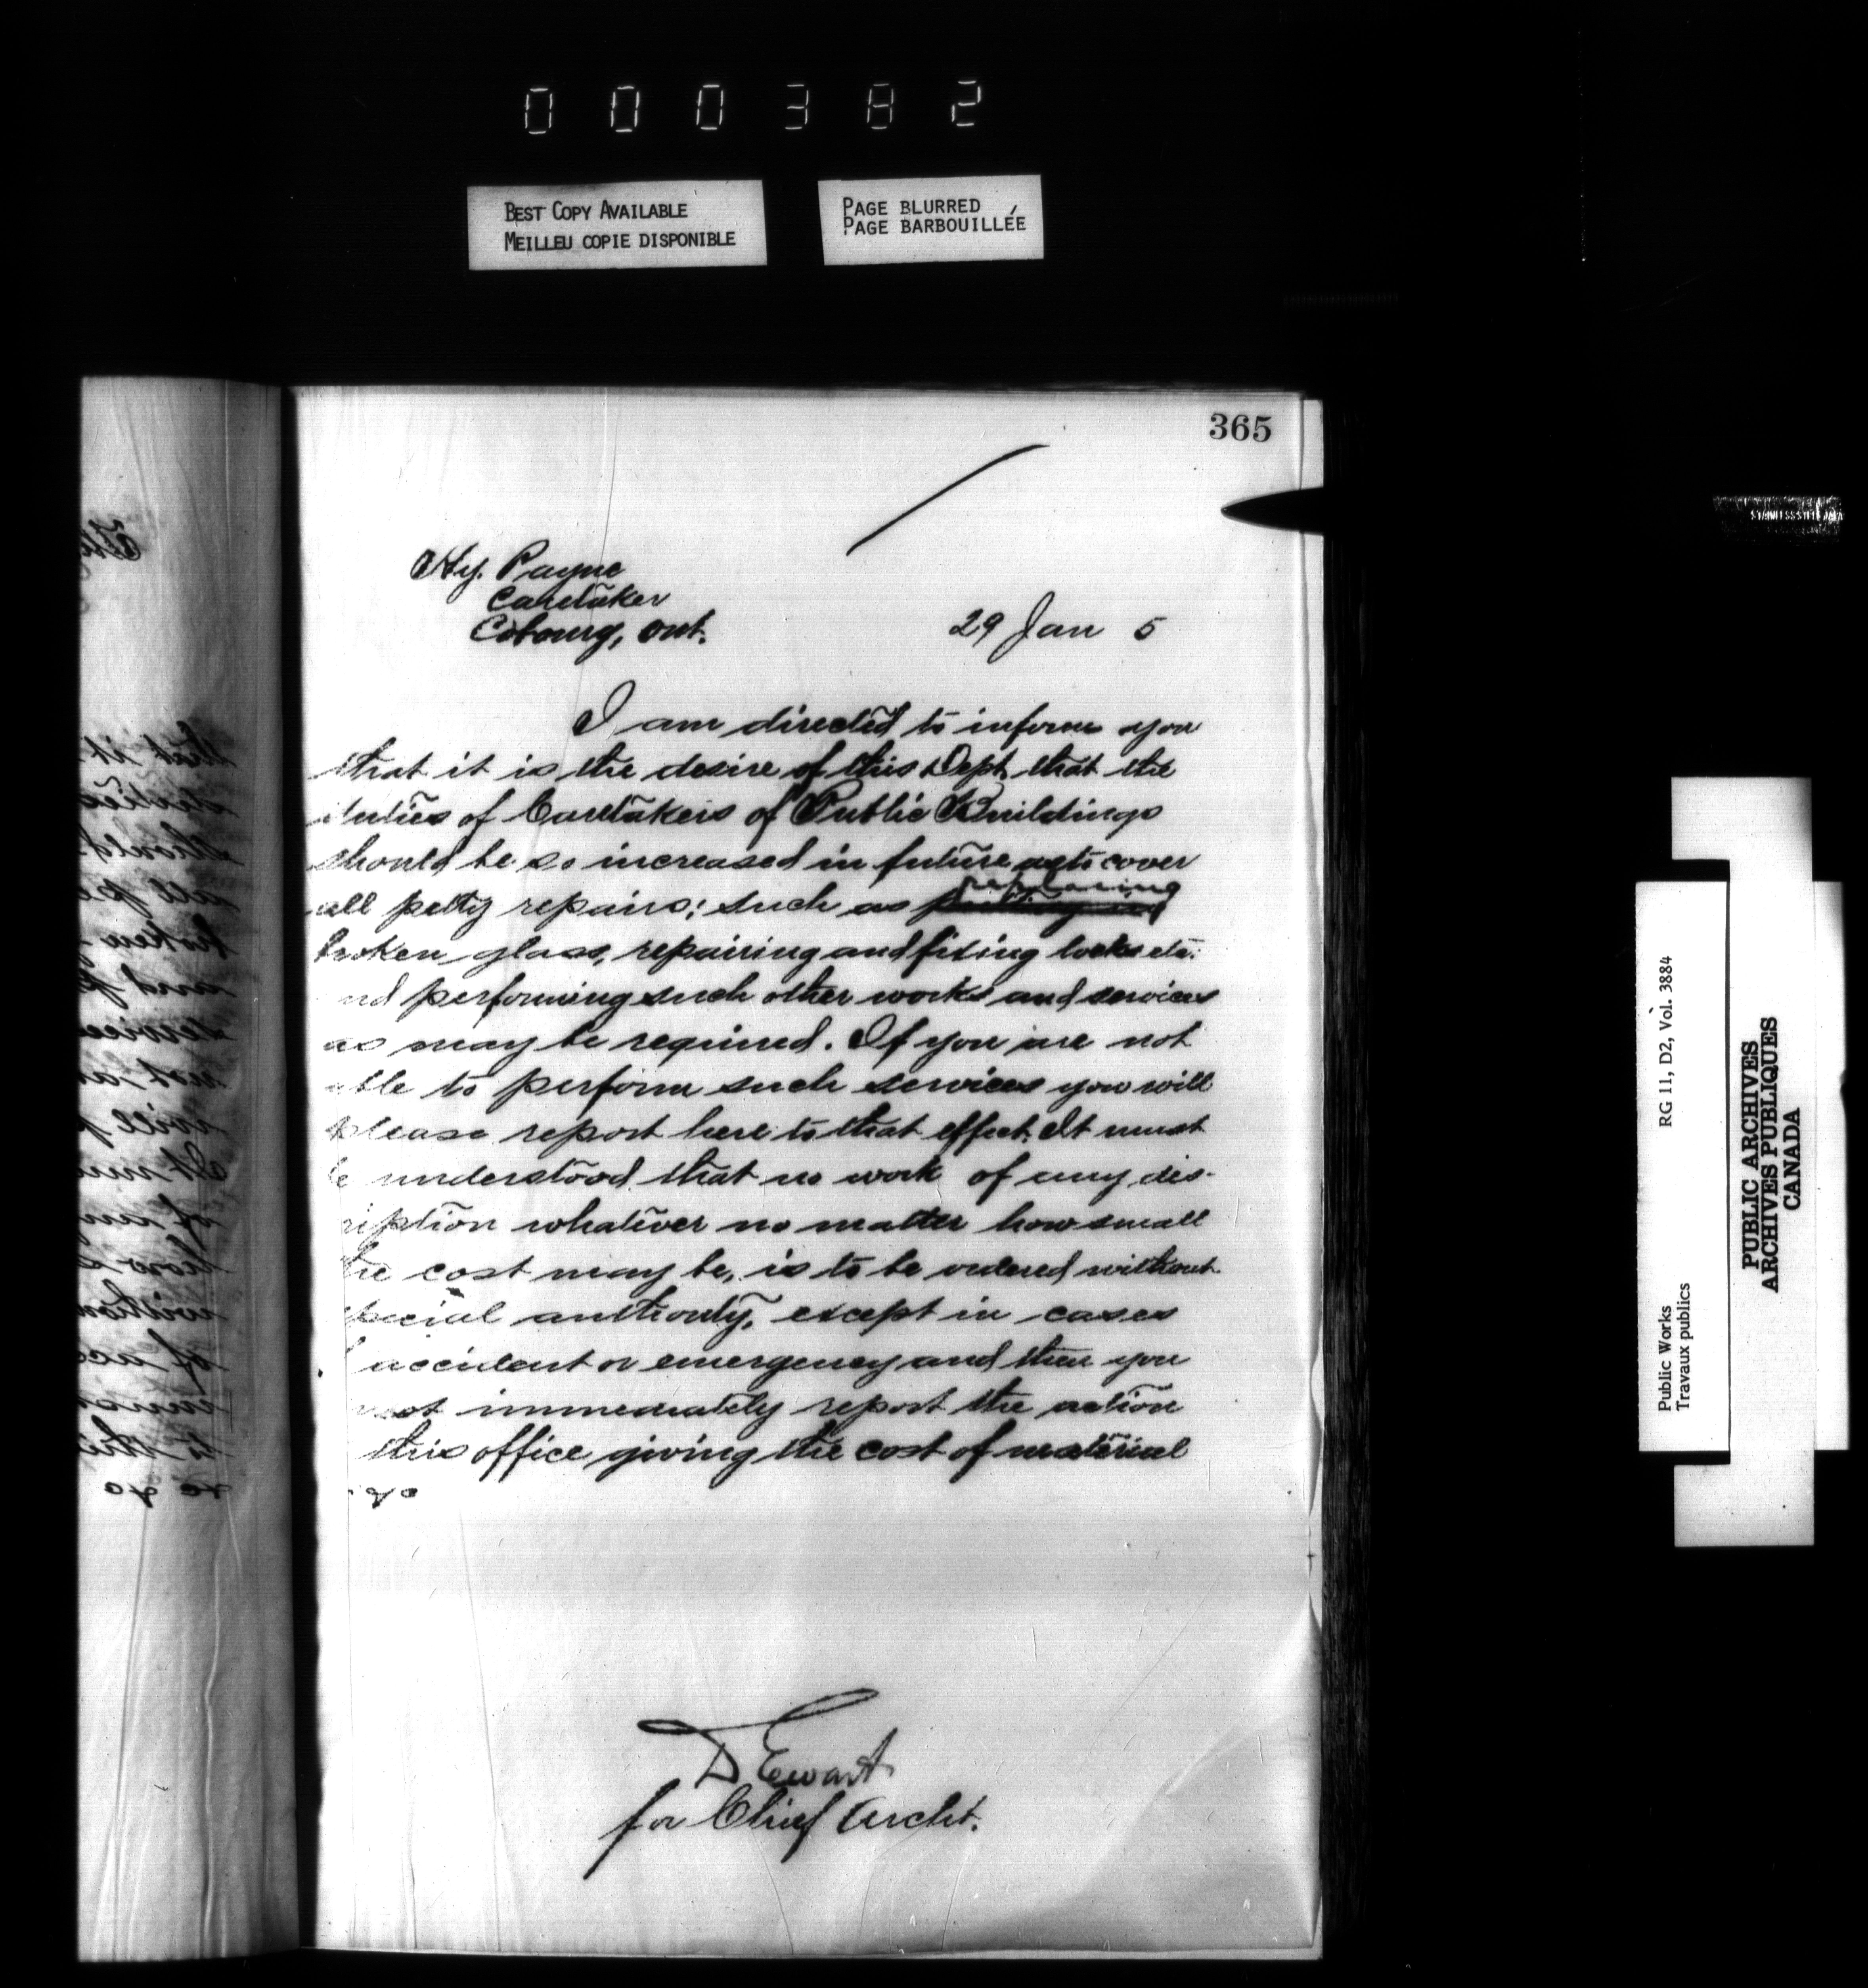 000382
BEST COPY AVAILABLE
MEILLEU COPIE DISPONIBLE
PAGE BLURRED
PAGE BARBOUILLÉE
365
Hy. Payne
Caretaker
Cobourg, Ont.
29 Jan 5
I am directed to inform you
that it is the desire of this Dept. that the
duties of Caretakers of Public Buildings
should be so increased in future as to cover
replacing
all petty repairs; such as
broken glass, repairing and fixing locks etc.
nd performing such other works and services
as may be required. If you are not
able to perform such services you will
please report here to that effect. It must
be understood that no work of any des-
ription whatever no matter how small
the cost may be, is to be ordered without
special authority, except in cases
accident or emergency and then you
must immediately report the action
this office giving the cost of material
&c
D Ewart
for Chief Archt.
Public Works
Travaux publics
RG 11, D2, Vol. 3884
PUBLIC ARCHIVES
ARCHIVES PUBLIQUES
CANADA